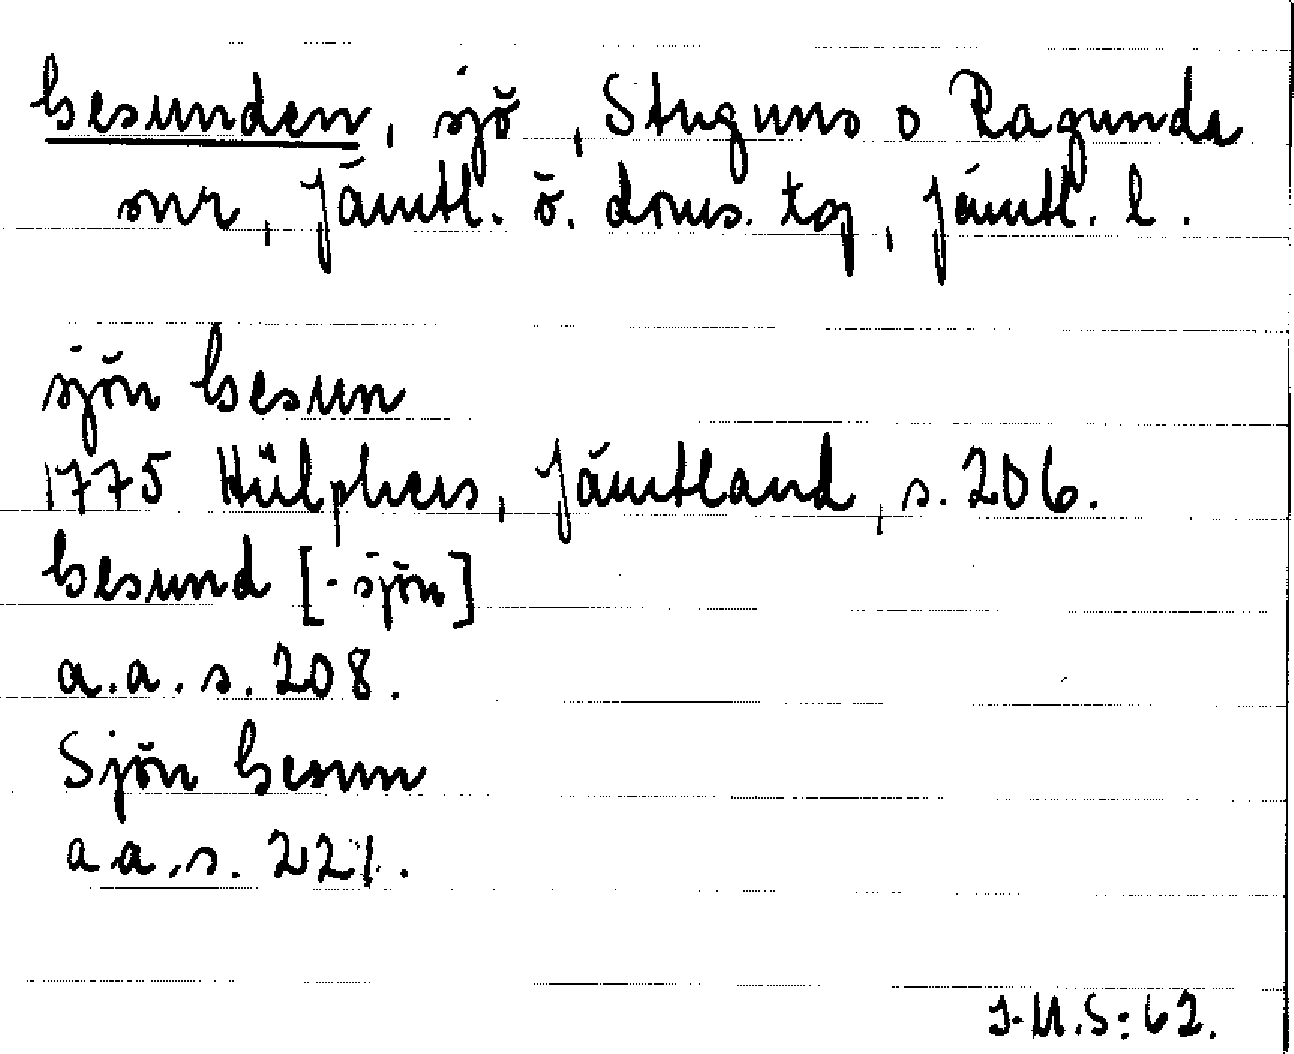 Gesunden, sjö, Stuguns o Ragunda
snr, Jämtl. ö. doms. tg, Jämtl. l.
sjön Gesun
1775 Hülphers, Jämtland, s. 206.
Gesund [-sjön]
a.a. s. 208.
Sjön Gesun
a a.s. 221.
J.M.S:62.